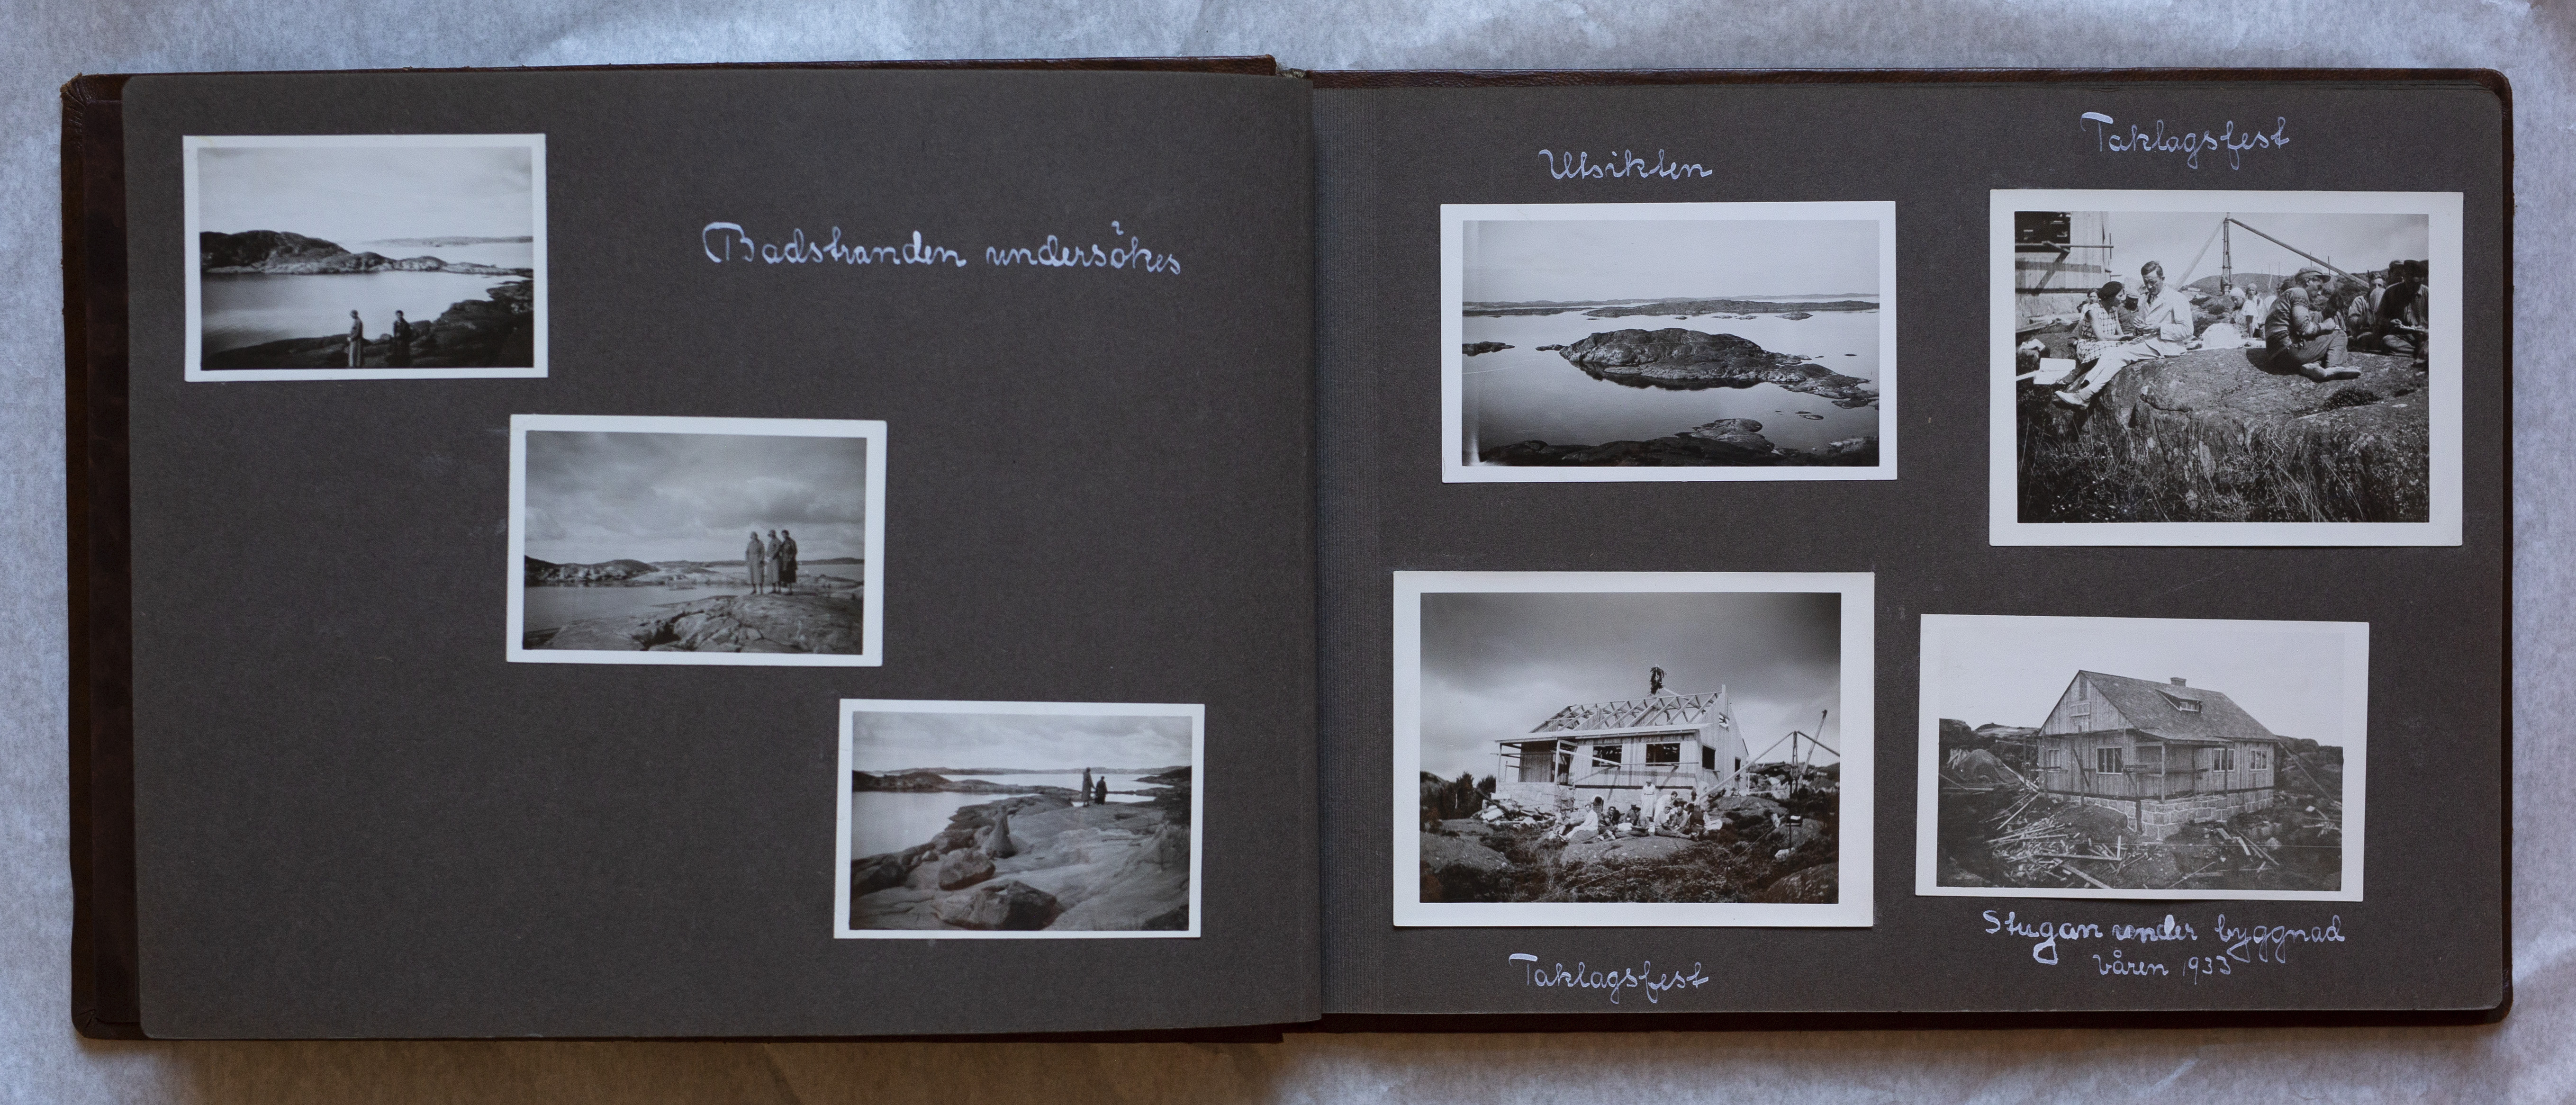 Badstranden undersökes
Utsikten
Taklagsfest
Taklagsfest
Stugan under byggnad
våren 1933